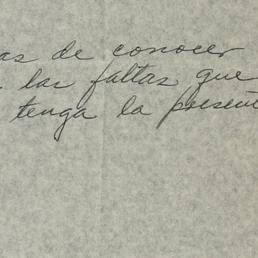 as de conocer
las faltas que
tenga la present